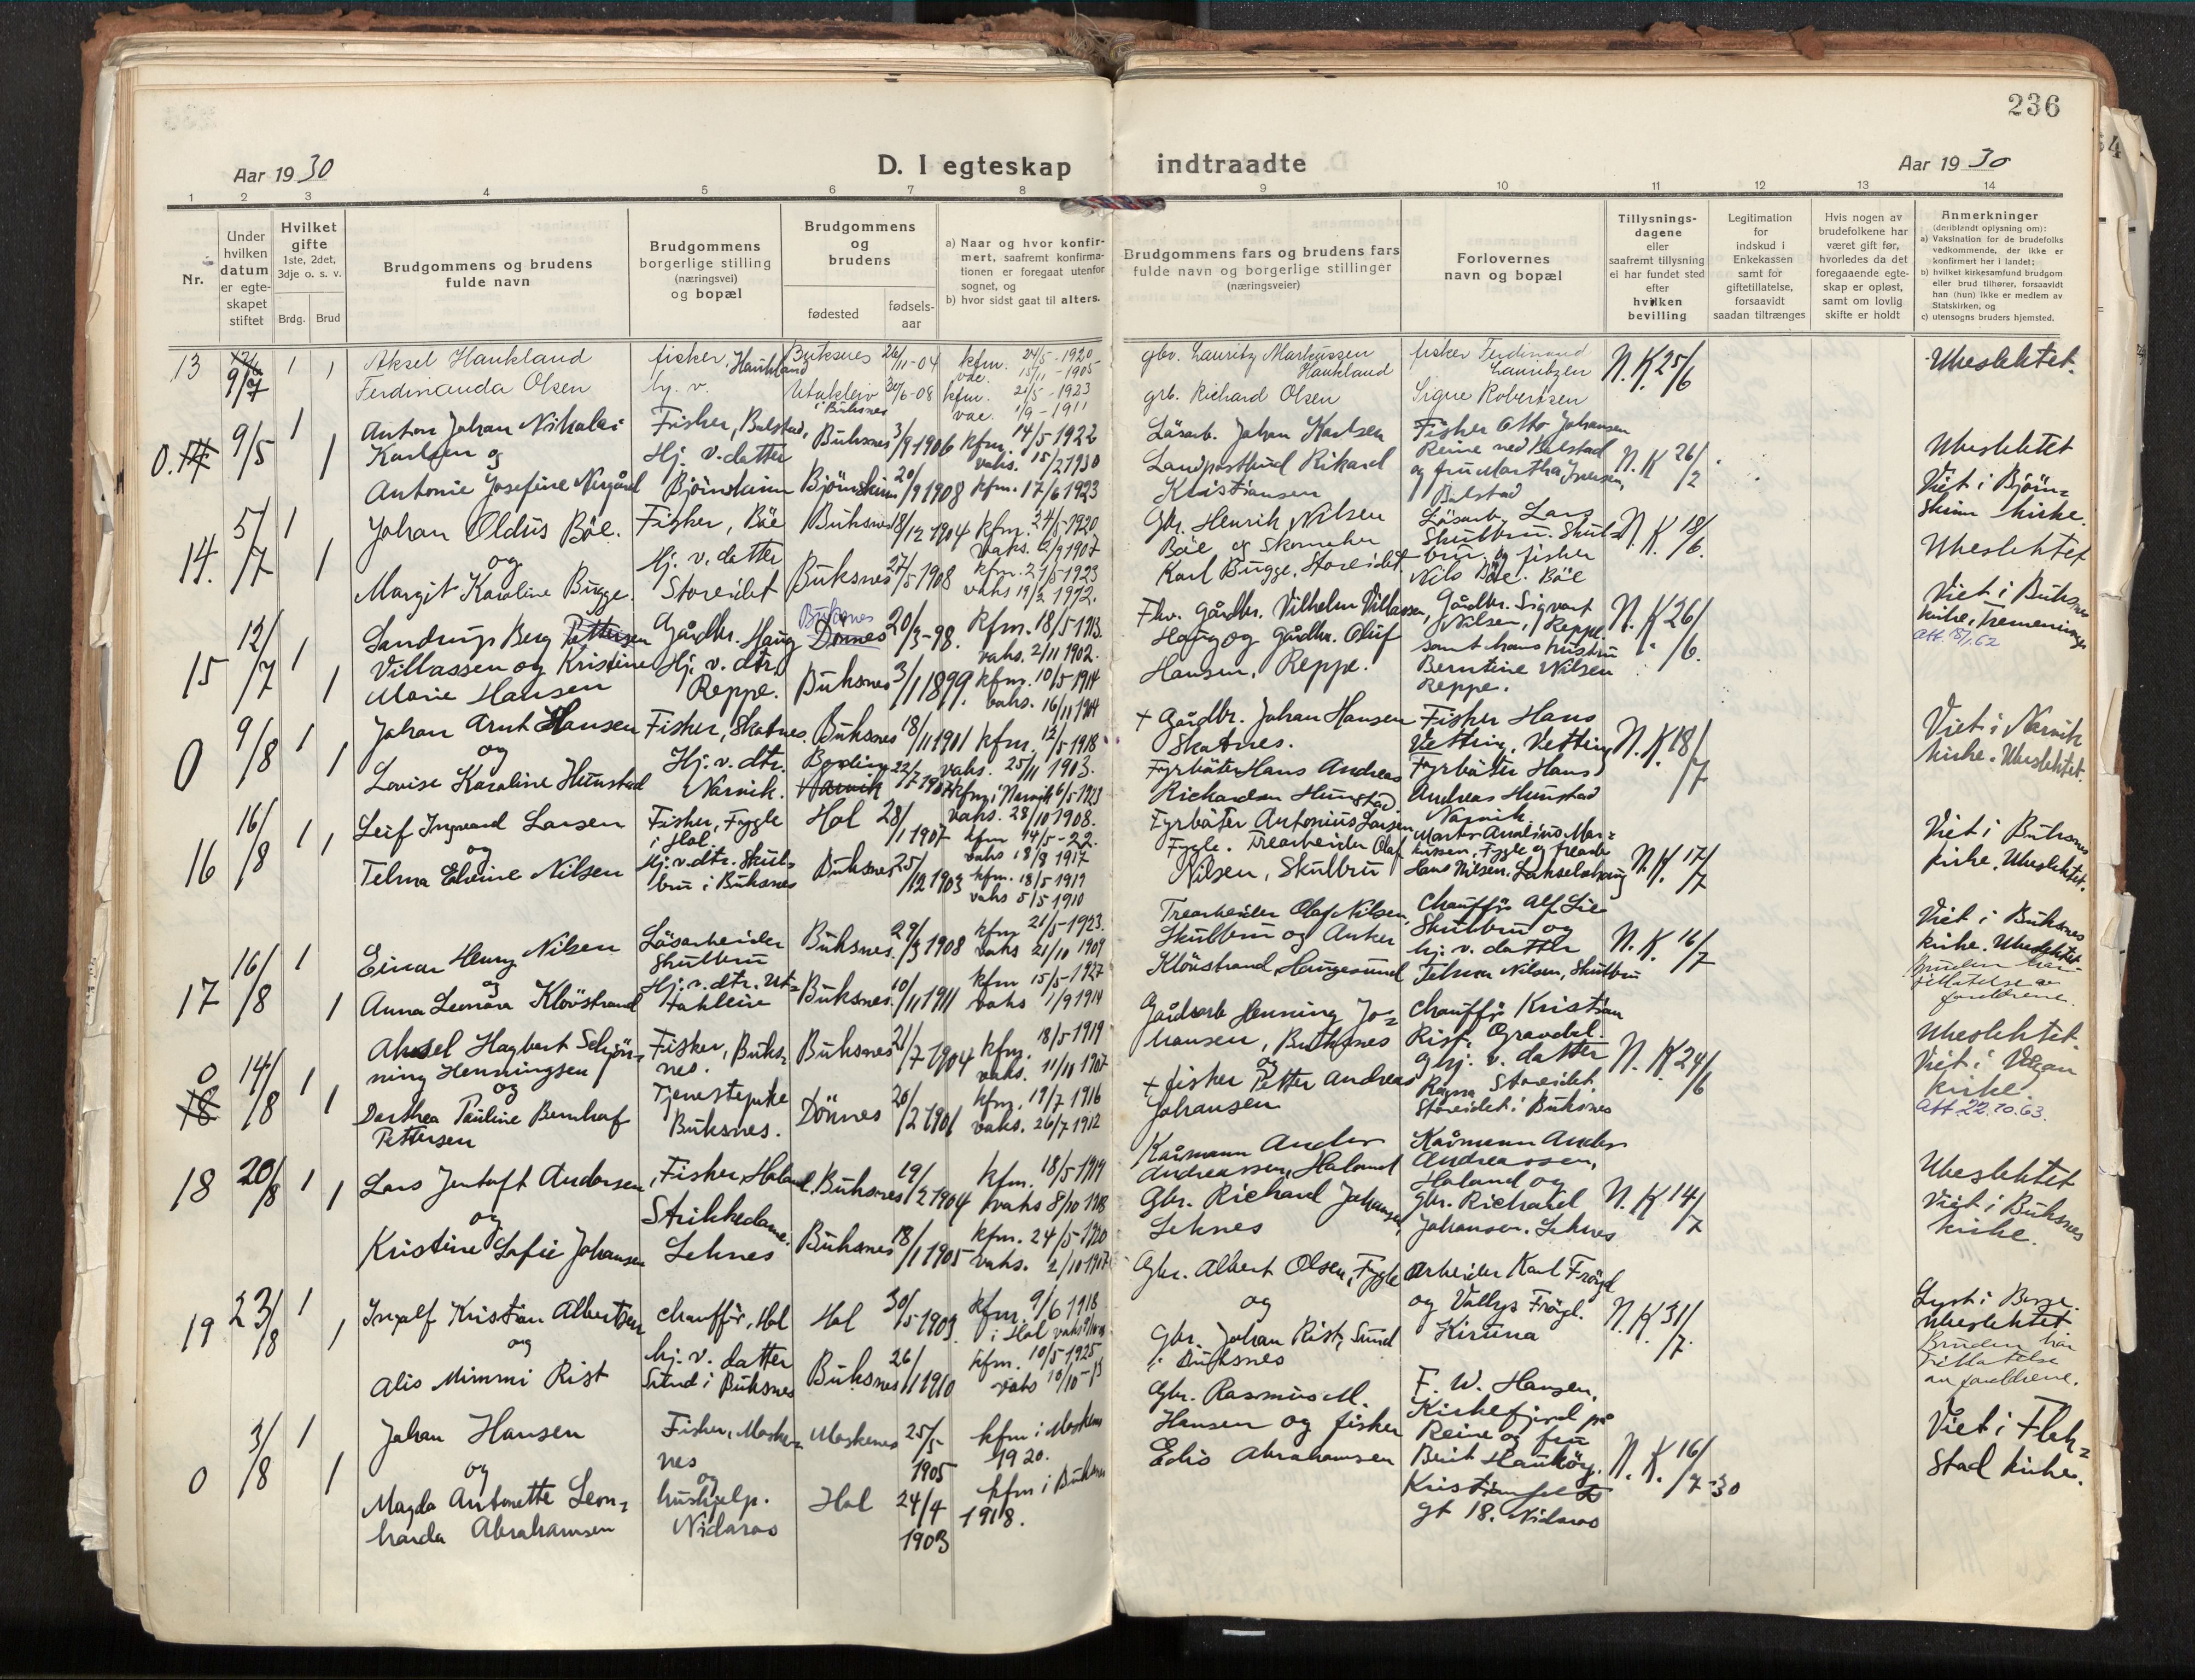 236
Aar 1930
D. I egteskap indtraadte
Aar 1930
1 2 3 4 5 6 7 8 9 10 11 12 13 14
Nr.
Under hvilken datum er egteskapet stiftet
Hvilket gifte 1ste, 2det, 3dje o. s. v.
Brdg. Brud
Brudgommens og brudens fulde navn
Brudgommens borgerlige stilling (næringsvei) og bopæl
Brudgommens og brudens
fødested
fødselsaar
a) Naar og hvor konfirmert, saafremt konfirmationen er foregaat utenfor sognet, og
b) hvor sidst gaat til alters.
Brudgommens fars og brudens fars fulde navn og borgerlige stillinger (næringsveier)
Forlovernes navn og bopæl
Tillysningsdagene eller saafremt tillysning ei har fundet sted efter hvilken bevilling
Legitimation for indskud i Enkekassen samt for giftetillatelse, forsaavidt saadan tiltrænges
Hvis nogen av brudefolkene har været gift før, hvorledes da det foregaaende egteskap er opløst, samt om lovlig skifte er holdt
Anmerkninger (deriblandt oplysning om):
a) Vaksination for de brudefolks vedkommende, der ikke er konfirmert her i landet;
b) hvilket kirkesamfund brudgom eller brud tilhører, forsaavidt han (hun) ikke er medlem av Statskirken, og
c) utensogns bruders hjemsted.
13 9/7 1 1
Aksel Haukland
Ferdinanda Olsen
fisker, Haukland
hj. v.
Buksnes 26/11-04
Utakleiv i Buksnes 30/6-08
kfm. 24/5-1920
vac. 15/11-1905
kfm. 21/5-1923
vac. 1/9-1911
gbr. Lauritz Markussen Haukland
grb. Richard Olsen
fisker Ferdinand Lauritzen
Signe Robertsen
N. K. 25/6
Ubeslektet.
0. 14 9/5 1 1
Anton Johan Nikolai
Karlsen og
Antonie Josefine Nygård
Fisker, Balstad,
Hj. v. datter
Bjørnskinn
Buksnes 3/9 1906
Bjørnskinn 20/9 1908
kfm. 14/5 1922
vaks. 15/2 1930
kfm. 17/6 1923
Løsarb. Johan Karlsen
Landpostbud Rikard
Kristiansen
Fisker Otto Johansen
Reine ved Balstad
og fru Martha Iversen,
Balstad
N. K 26/2
Ubeslektet
Viet i Bjørnskinn kirke.
14. 5/7 1 1
Johan Oldus Böe.
og
Margit Karoline Bugge.
Fisker, Böe
Hj. v. datter
Storeidet
Buksnes 18/12 1904
Buksnes 27/5 1908
kfm. 24/5-1920
vaks. 2/9 1907
kfm. 21/5 1923
vaks 19/2 1912.
Gbr. Henrik Nilsen
Böe og Skomaker
Karl Bugge, Storeidet
Løsarb. Lars
Skulbru. Skulbru. og fisker
Nils Böe. Böe
N. K. 18/6.
Ubeslektet
Viet i Buksnes
kirke, Tremenninger
att. 18/1.62
15 12/7 1 1
Sandrup Berg Pettersen
Villassen og Kristine
Marie Hansen
Gårdbr. Haug
Hj. v. dtr.
Reppe.
Buksnes
Dønnes 20/3-98.
Buksnes 3/1 1899.
kfm. 18/5 1913.
vaks. 2/11 1902.
kfm. 10/5 1914
vaks. 16/11 1904
Fhv. Gårdbr. Vilhelm Villassen,
Haug og Gårdbr. Oluf
Hansen, Reppe.
Gårdbr. Sigvart
Nilsen, Reppe
samt hans hustru
Berntine Nilsen
Reppe.
N. K 26/6.
0 9/8 1 1
Johan Arnt Hansen
og
Lovise Karoline Hunstad
Fisker, Skotnes.
Hj. v. dtr.
Narvik.
Buksnes 18/11 1901
Bodin
Narvik 22/7 1907
kfm. 12/5 1918
vaks. 25/11 1903.
kfm i Narvik 6/5 1923
vaks. 28/10 1908.
+ Gårdbr. Johan Hansen
Skotnes.
Fyrbøter Hans Andreas
Richardsen Hunstad.
Fisker Hans
Vetting, Vetting
Fyrbøter Hans
Andreas Hunstad
Narvik
N. K 18/7
Viet i Narvik
kirke. Ubeslektet.
16 16/8 1 1
Leif Ingvard Larsen
og
Telma Elvine Nilsen
Fisker, Fygle
i Hol.
Hj. v. dtr. Skulbru i Buksnes
Hol 28/1 1907
Buksnes 25/12 1903
kfm 14/5-22.
vaks 18/8 1917
kfm. 18/5 1919
vaks 5/5 1910
Fyrbøter Antonius Larsen
Fygle. Trearbeider Olaf
Nilsen, Skulbru
Hans Nilsen
N. K. 17/7
Viet i Buksnes
kirke. Ubeslektet.
17 16/8 1 1
Einar Henry Nilsen
og
Anna Leonora Klovstrand
Løsarbeider
Skulbru
Hj. v. dtr. Utakleiv
Buksnes. 29/3 1908
Buksnes. 10/11 1911
kfm 21/5-1923.
vaks 21/10 1909
kfm 15/5-1927
vaks 1/9 1914
Trearbeider Olaf Nilsen,
Skulbru og Anker
Klovstrand, Haugesund
Chauffør Alf Lie
Skulbru og
hj. v. datter
Telma Nilsen, Skulbru
N. K. 16/7
Viet i Buksnes
kirke. Ubeslektet.
Bruden har
tillatelse av
foreldrene.
0 18 14/8 1 1
Aksel Hagbart Schjønning Henningsen
og
Dorthea Pauline Bernhof
Pettersen
Fisker, Buksnes.
Tjenestepike
Buksnes.
Buksnes 21/7 1904
Dønnes 20/2 1901
kfm. 18/5 1919
vaks. 11/11 1907
kfm. 19/7 1916
vaks. 26/7 1912
Gårdsarb Henning Johansen, Buksnes
og
+ fisker Petter Andreas
Johansen
Chauffør Kristian
Rist, Gravdal.
og hj. v. datter
Ragna Storeidet,
Storeidet i Buksnes
N. K 24/6
Ubeslektet.
Viet i Vågan
kirke.
Att. 22.10.63.
18 20/8 1 1
Lars Jentoft Andersen
og
Kristine Sofie Johansen
Fisker, Holand,
Strikkedame.
Leknes
Buksnes 19/2 1904
Buksnes 18/1 1905
kfm. 18/5 1919
vaks 8/10 1908
kfm. 24/5-1920
vaks. 2/10 1907
Kårmann Anders
Andreassen, Holand
Gbr. Richard Johansen,
Leknes
Kårmann Anders
Andreassen,
Holand og
gbr. Richard
Johansen. Leknes
N. K 14/7
Ubeslektet
Viet i Buksnes
kirke.
19 23/8 1 1
Ingolf Kristian Albertsen
og
Alis Mimmi Rist
chauffør, Hol
hj. v. datter
Sund i Buksnes
Hol 30/5 1903
Buksnes 26/1 1910
kfm. 9/6 1918
i Hol
kfm. 10/5 1925
vaks 10/10-13
Gbr. Albert Olsen, Fygle
og
Gbr. Johan Rist, Sund
i Buksnes
Arbeider Karl Frøyd
og Vallys Frøyd.
Kiruna
N. K 31/7.
Lyst i Borge.
Ubeslektet
Bruden har
tillatelse
av foreldrene.
0 3/8 1 1
Johan Hansen
og
Magda Antonette Leonharda Abrahamsen
Fisker, Moskenes
og
hushjelp.
Nidaros
Moskenes 25/5 1905
Hol 24/4 1903
kfm i Moskenes
1920.
kfm i Buksnes
1918.
Gbr. Rasmus M.
Hansen og fisker
Edis Abrahamsen
F. W. Hansen,
Kirkefjord på
Reine og fru
Berit Haukøy,
gt 18. Nidaros
N. K. 16/7-30
Viet i Flakstad kirke.